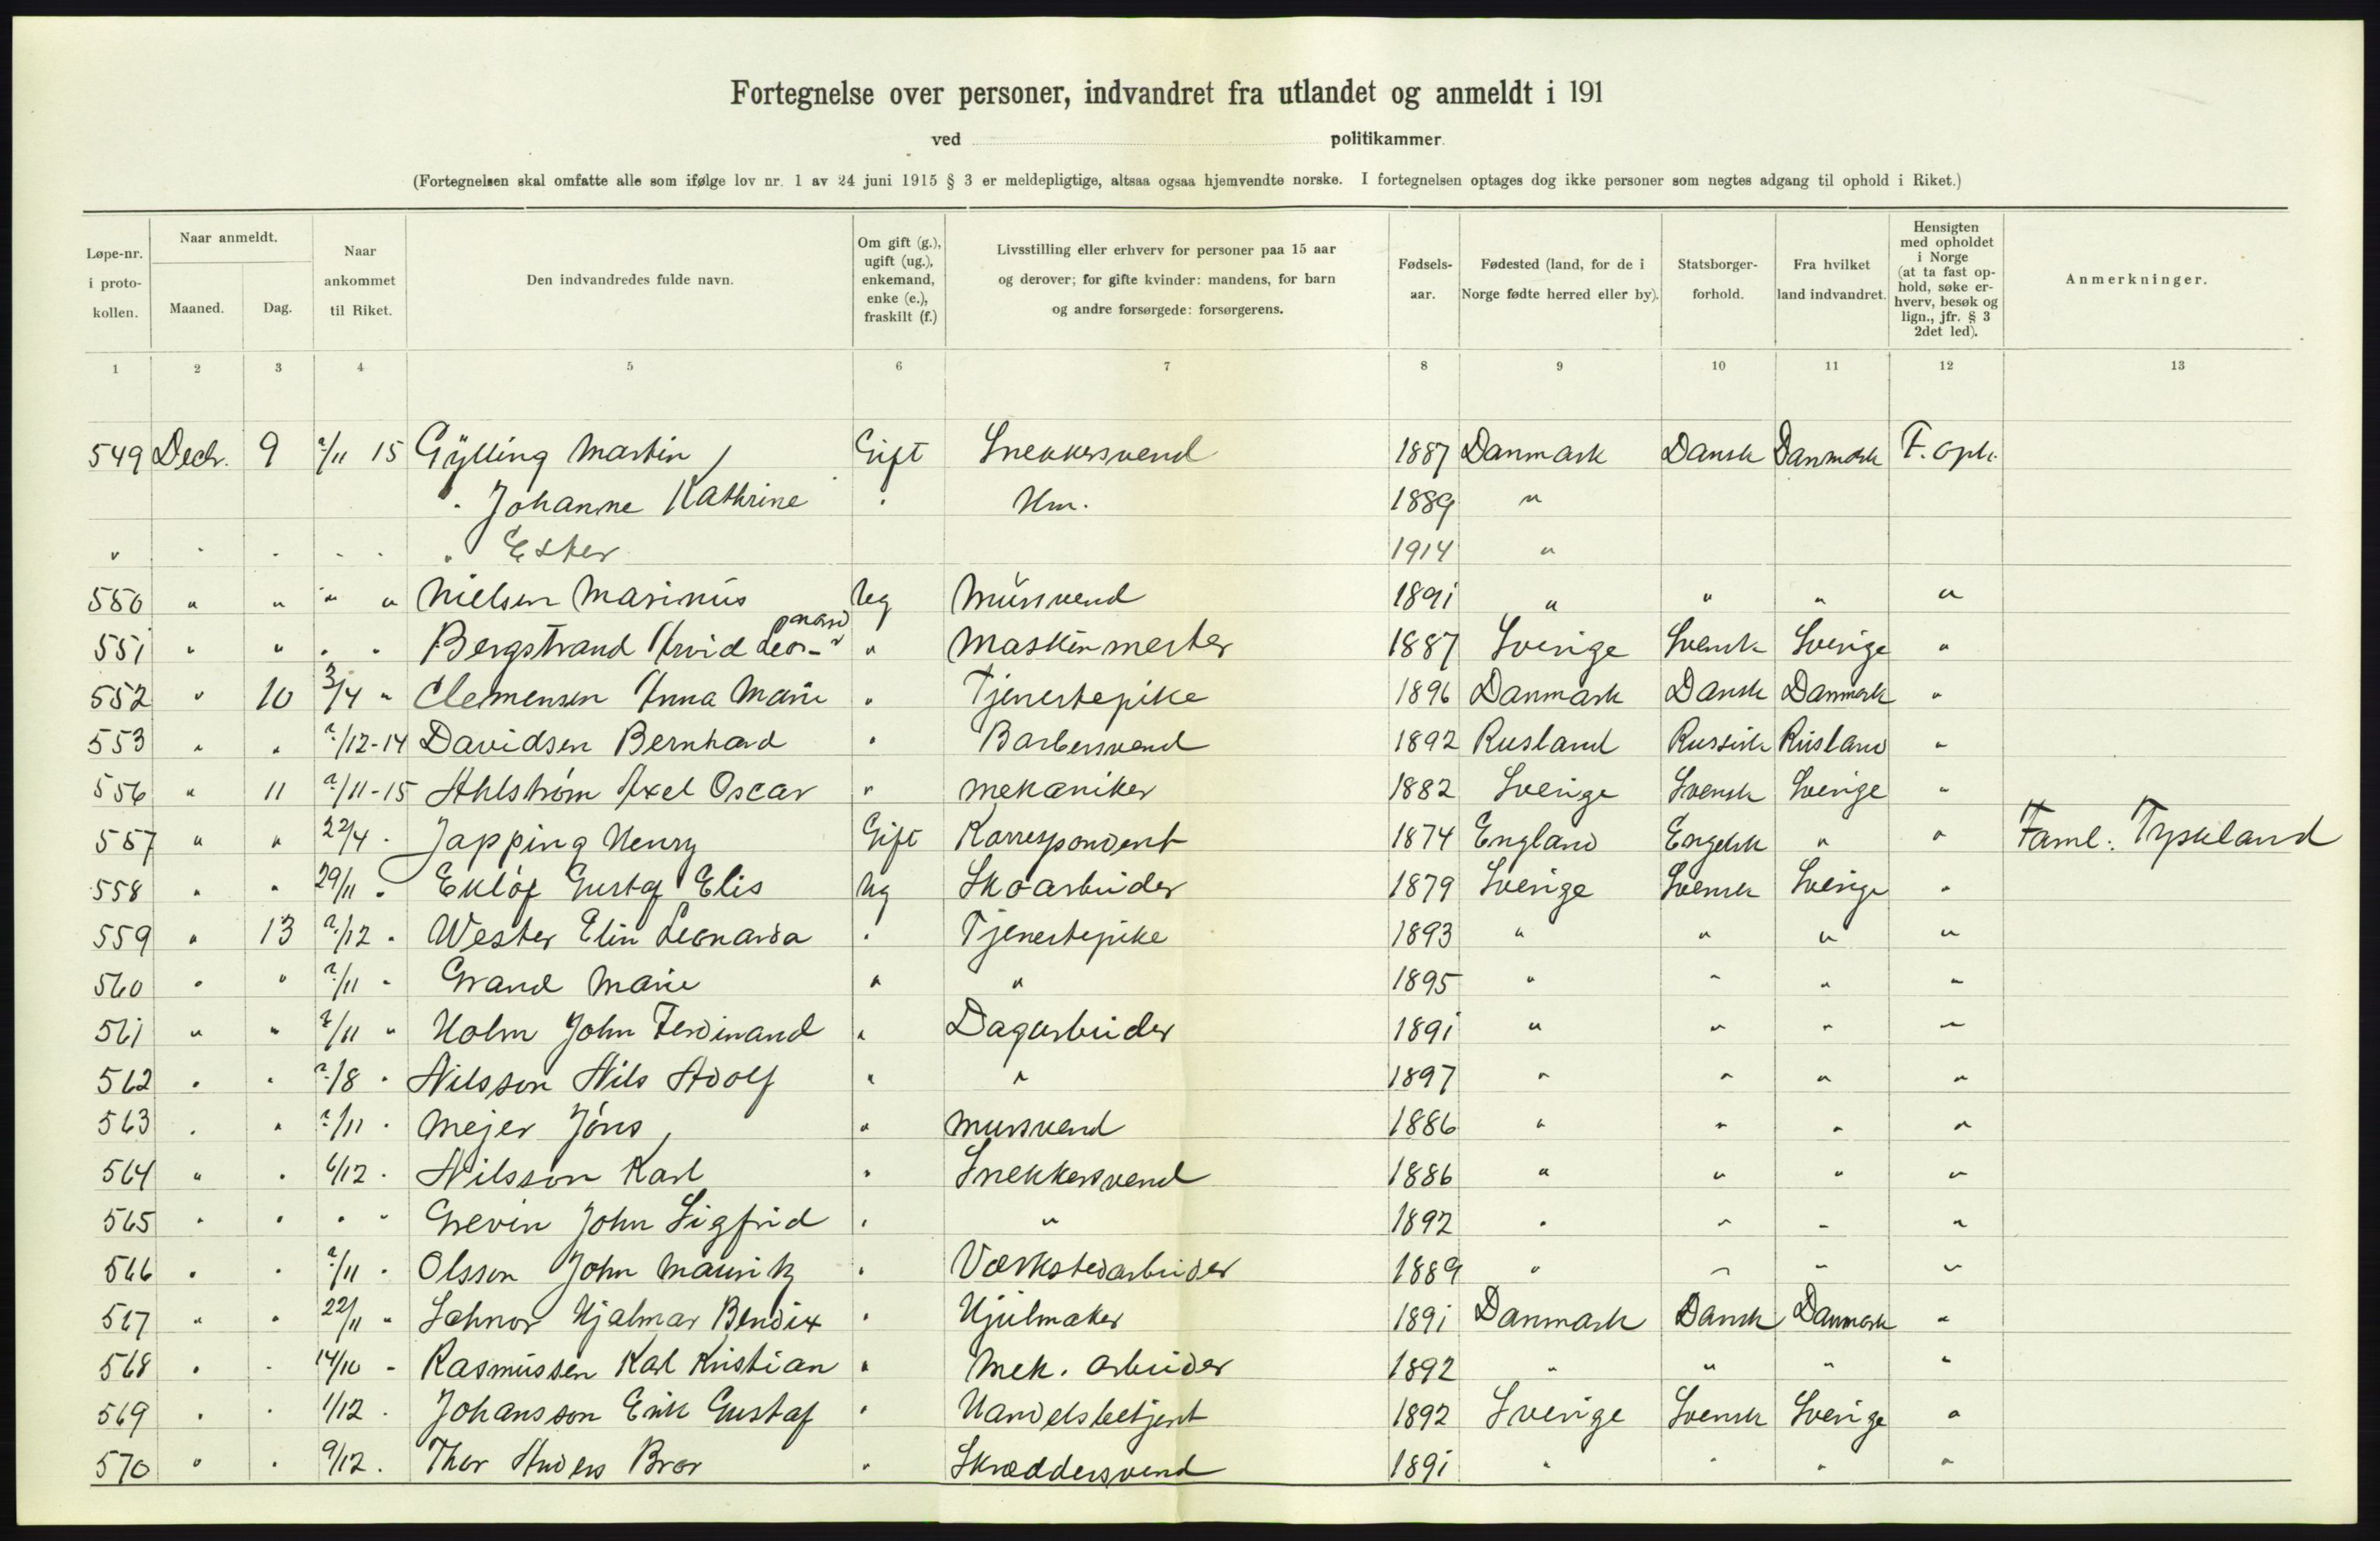 Fortegnelse over personer, indvandret fra utlandet og anmeldt i 191
ved politikammer.
(Fortegnelsen skal omfatte alle som ifølge lov nr. 1 av 24 juni 1915 § 3 er meldepligtige, altsaa ogsaa hjemvendte norske. I fortegnelsen optages dog ikke personer som negtes adgang til ophold i Riket.)
Løpe-nr. i proto- kollen. Naar anmeldt. Maaned. Dag. Naar ankommet til Riket. Den indvandredes fulde navn. Om gift (g.), ugift (ug.), enkemand, enke (e.), fraskilt (f.) Livsstilling eller erhverv for personer paa 15 aar og derover; for gifte kvinder: mandens, for barn og andre forsørgede: forsørgerens. Fødsels- aar. Fødested (land, for de i Norge fødte herred eller by). Statsborger- forhold. Fra hvilket land indvandret. Hensigten med opholdet i Norge (at ta fast op- hold, søke er- hverv, besøk og lign., jfr. § 3 2det led). Anmerkninger.
1 2 3 4 5 6 7 8 9 10 11 12 13
549 Decbr. 9 ?/11 15 Gylling Martin Gift Snekkersvend 1887 Danmark Dansk Danmark F. oph.
" Johanne Kathrine " Hm. 1889 "
" " " " " " Ester 1914 "
550 " " " " Nielsen Marinus Ug Mursvend 1891 " " " "
551 " " " " Bergstrand Arvid Leonard " Maskinmester 1887 Sverige Svensk Sverige "
552 " 10 3/4 " Clemensen Anna Marie " Tjenestepike 1896 Danmark Dansk Danmark "
553 " " ?/12-14 Davidsen Bernhard " Barbersvend 1892 Rusland Russisk Rusland "
556 " 11 ?/11-15 Ahlstrøm Axel Oscar " Mekaniker 1882 Sverige Svensk Sverige "
557 " " 22/4 " Japping Henry Gift Korrespondent 1874 England Engelsk " " Faml. Tyskland
558 " " 29/11 " Ekløf Gustaf Elis Ug Skoarbeider 1879 Sverige Svensk Sverige "
559 " 13 ?/12 " Wester Elin Leonarda " Tjenestepike 1893 " " " "
560 " " ?/11 " Grand Marie " " 1895 " " " "
561 " " ?/11 " Holm John Ferdinand " Dagarbeider 1891 " " " "
562 " " ?/8 " Nilsson Nils Adolf " " 1897 " " " "
563 " " ?/11 " Mejer Jöns " Mursvend 1886 " " " "
564 " " 6/12 " Nilsson Karl " Snekkersvend 1886 " " " "
565 " " " " Grevin John Sigfrid " " 1892 " " " "
566 " " ?/11 " Olsson John Mauritz " Værkstedarbeider 1889 " " " "
567 " " 22/11 " Hjalmar Bendix " Hjulmaker 1891 Danmark Dansk Danmark "
568 " " 14/10 " Rasmussen Karl Kristian " Mek. arbeider 1892 " " " "
569 " " 1/12 " Johansson Erik Gustaf " Handelsbetjent 1892 Sverige Svensk Sverige "
570 " " 9/12 " Thor Anders Bror " Skræddersvend 1891 " " " "